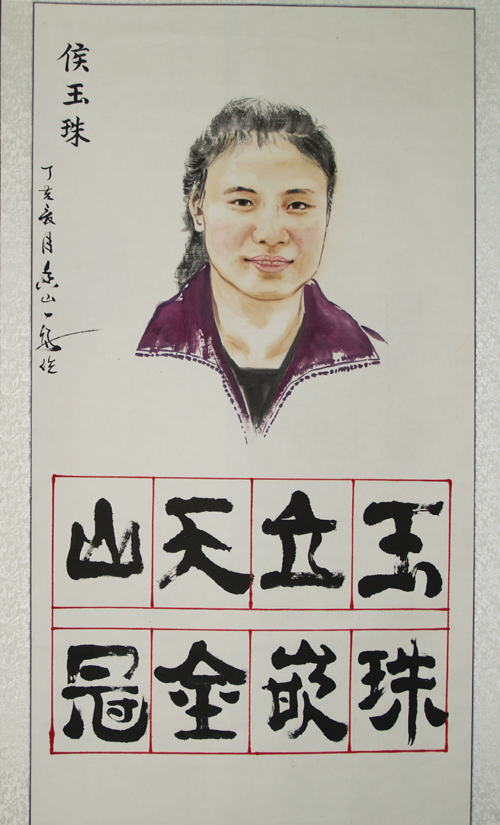 侯玉珠
丁亥夏月山一
玉立天山
珠嵌金冠